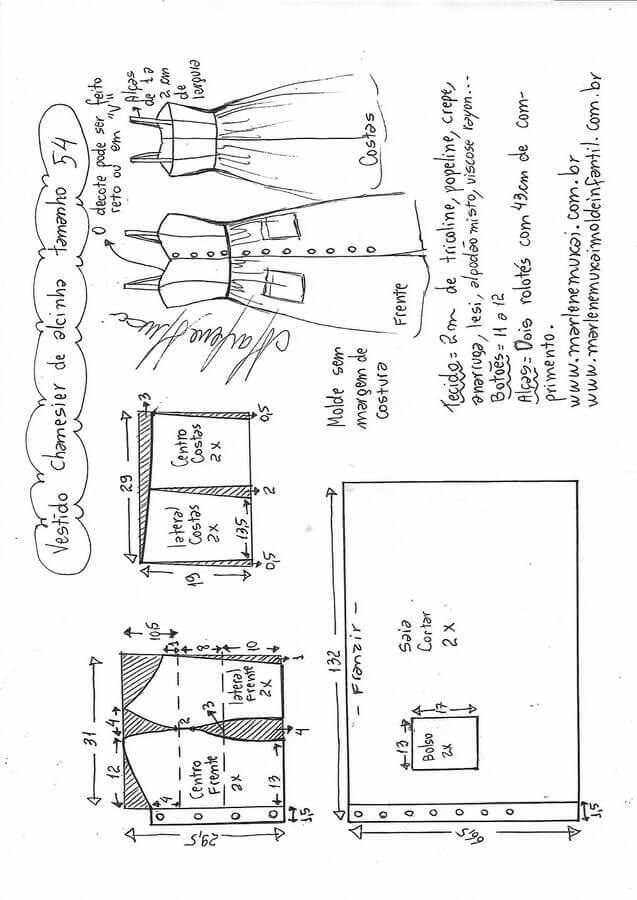 Vestido Chamesier de alcinha tamanho 54
O decote pode ser feito
reto ou em "V"
Alças
de 1 a
2 cm
de
largura
Costas
Frente
Molde sem
margem de
costura
29
3
Centro
Costas
2X
lateral
Costas
2X
19
0,5
2
13,5
0,5
31
12
4
10,5
3
8
10
lateral
Frente
2X
Centro
Frente
2X
4
2
3
13
4
1
29,5
1,5
132
- Franzir -
Saia
Cortar
2X
17
13
Bolso
2X
1,5
Tecido= 2m de tricoline, popeline, crepe,
anarruga, lesi, alpodão misto, viscose rayon...
Botões= 11 a 12
Alças= Dois rolotês com 43cm de com-
primento.
www.marlenemukai.com.br
www.marlenemukaimoldeinfantil.com.br